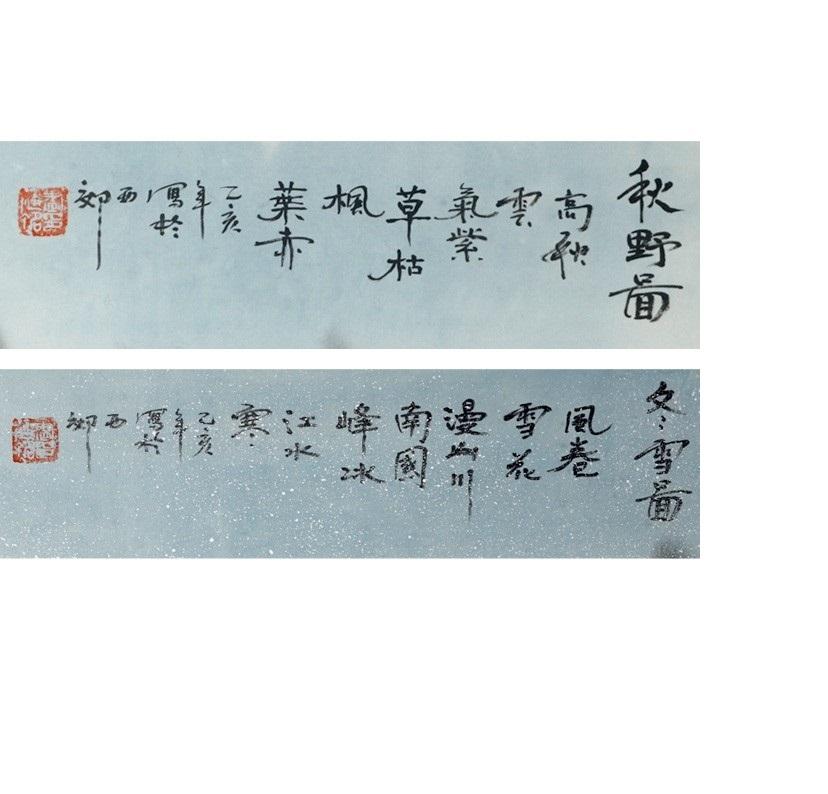 秋野啚
高秋
雲
氣紫
草枯
楓
葉赤
乙亥
年
寫於
西
郊
冬雪啚
風卷
雪花
漫山川
南國
峰冰
江水
寒
乙亥
年
寫於
西
郊